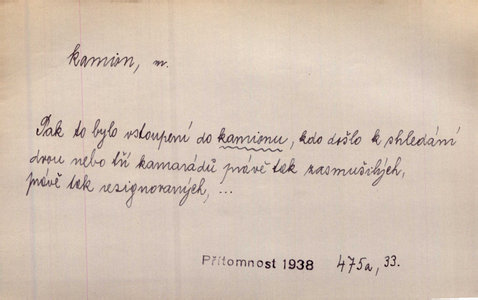 kamion, m.
Pak to bylo vstoupení do kamionu, kdo došlo k shledání
dvou nebo tří kamarádů právě tak zasmušilých,
právě tak resignovaných, ...
Přítomnost 1938 475a, 33.